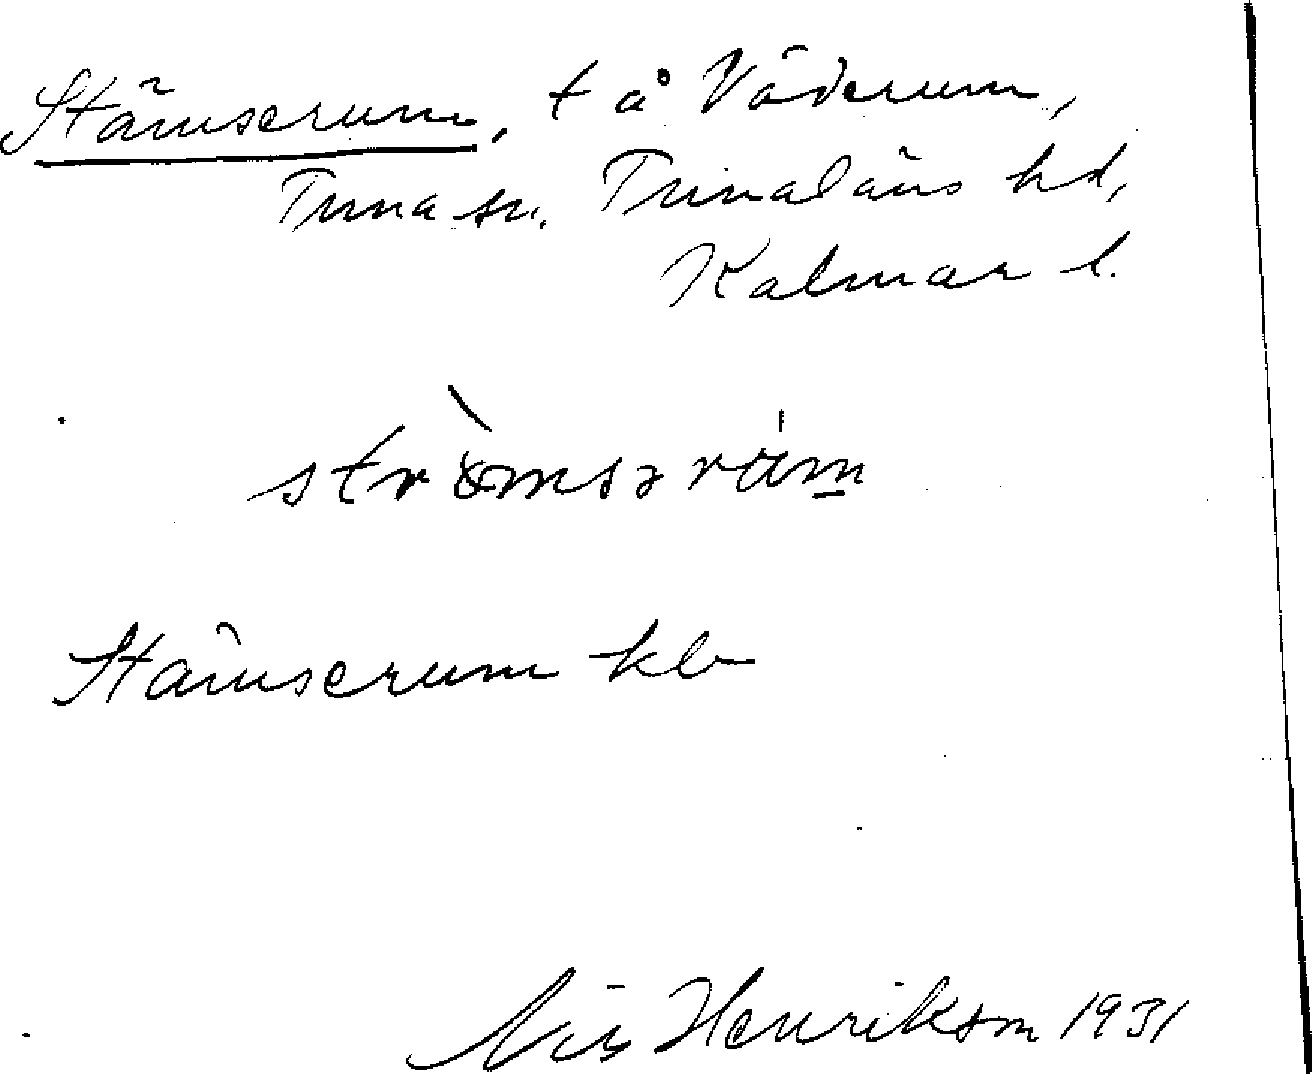 Stämserum, t å Väderum,
Tuna sn. Tunaläns hd,
Kalmar l.
Stämserum kb
Nils Henrikson 1931